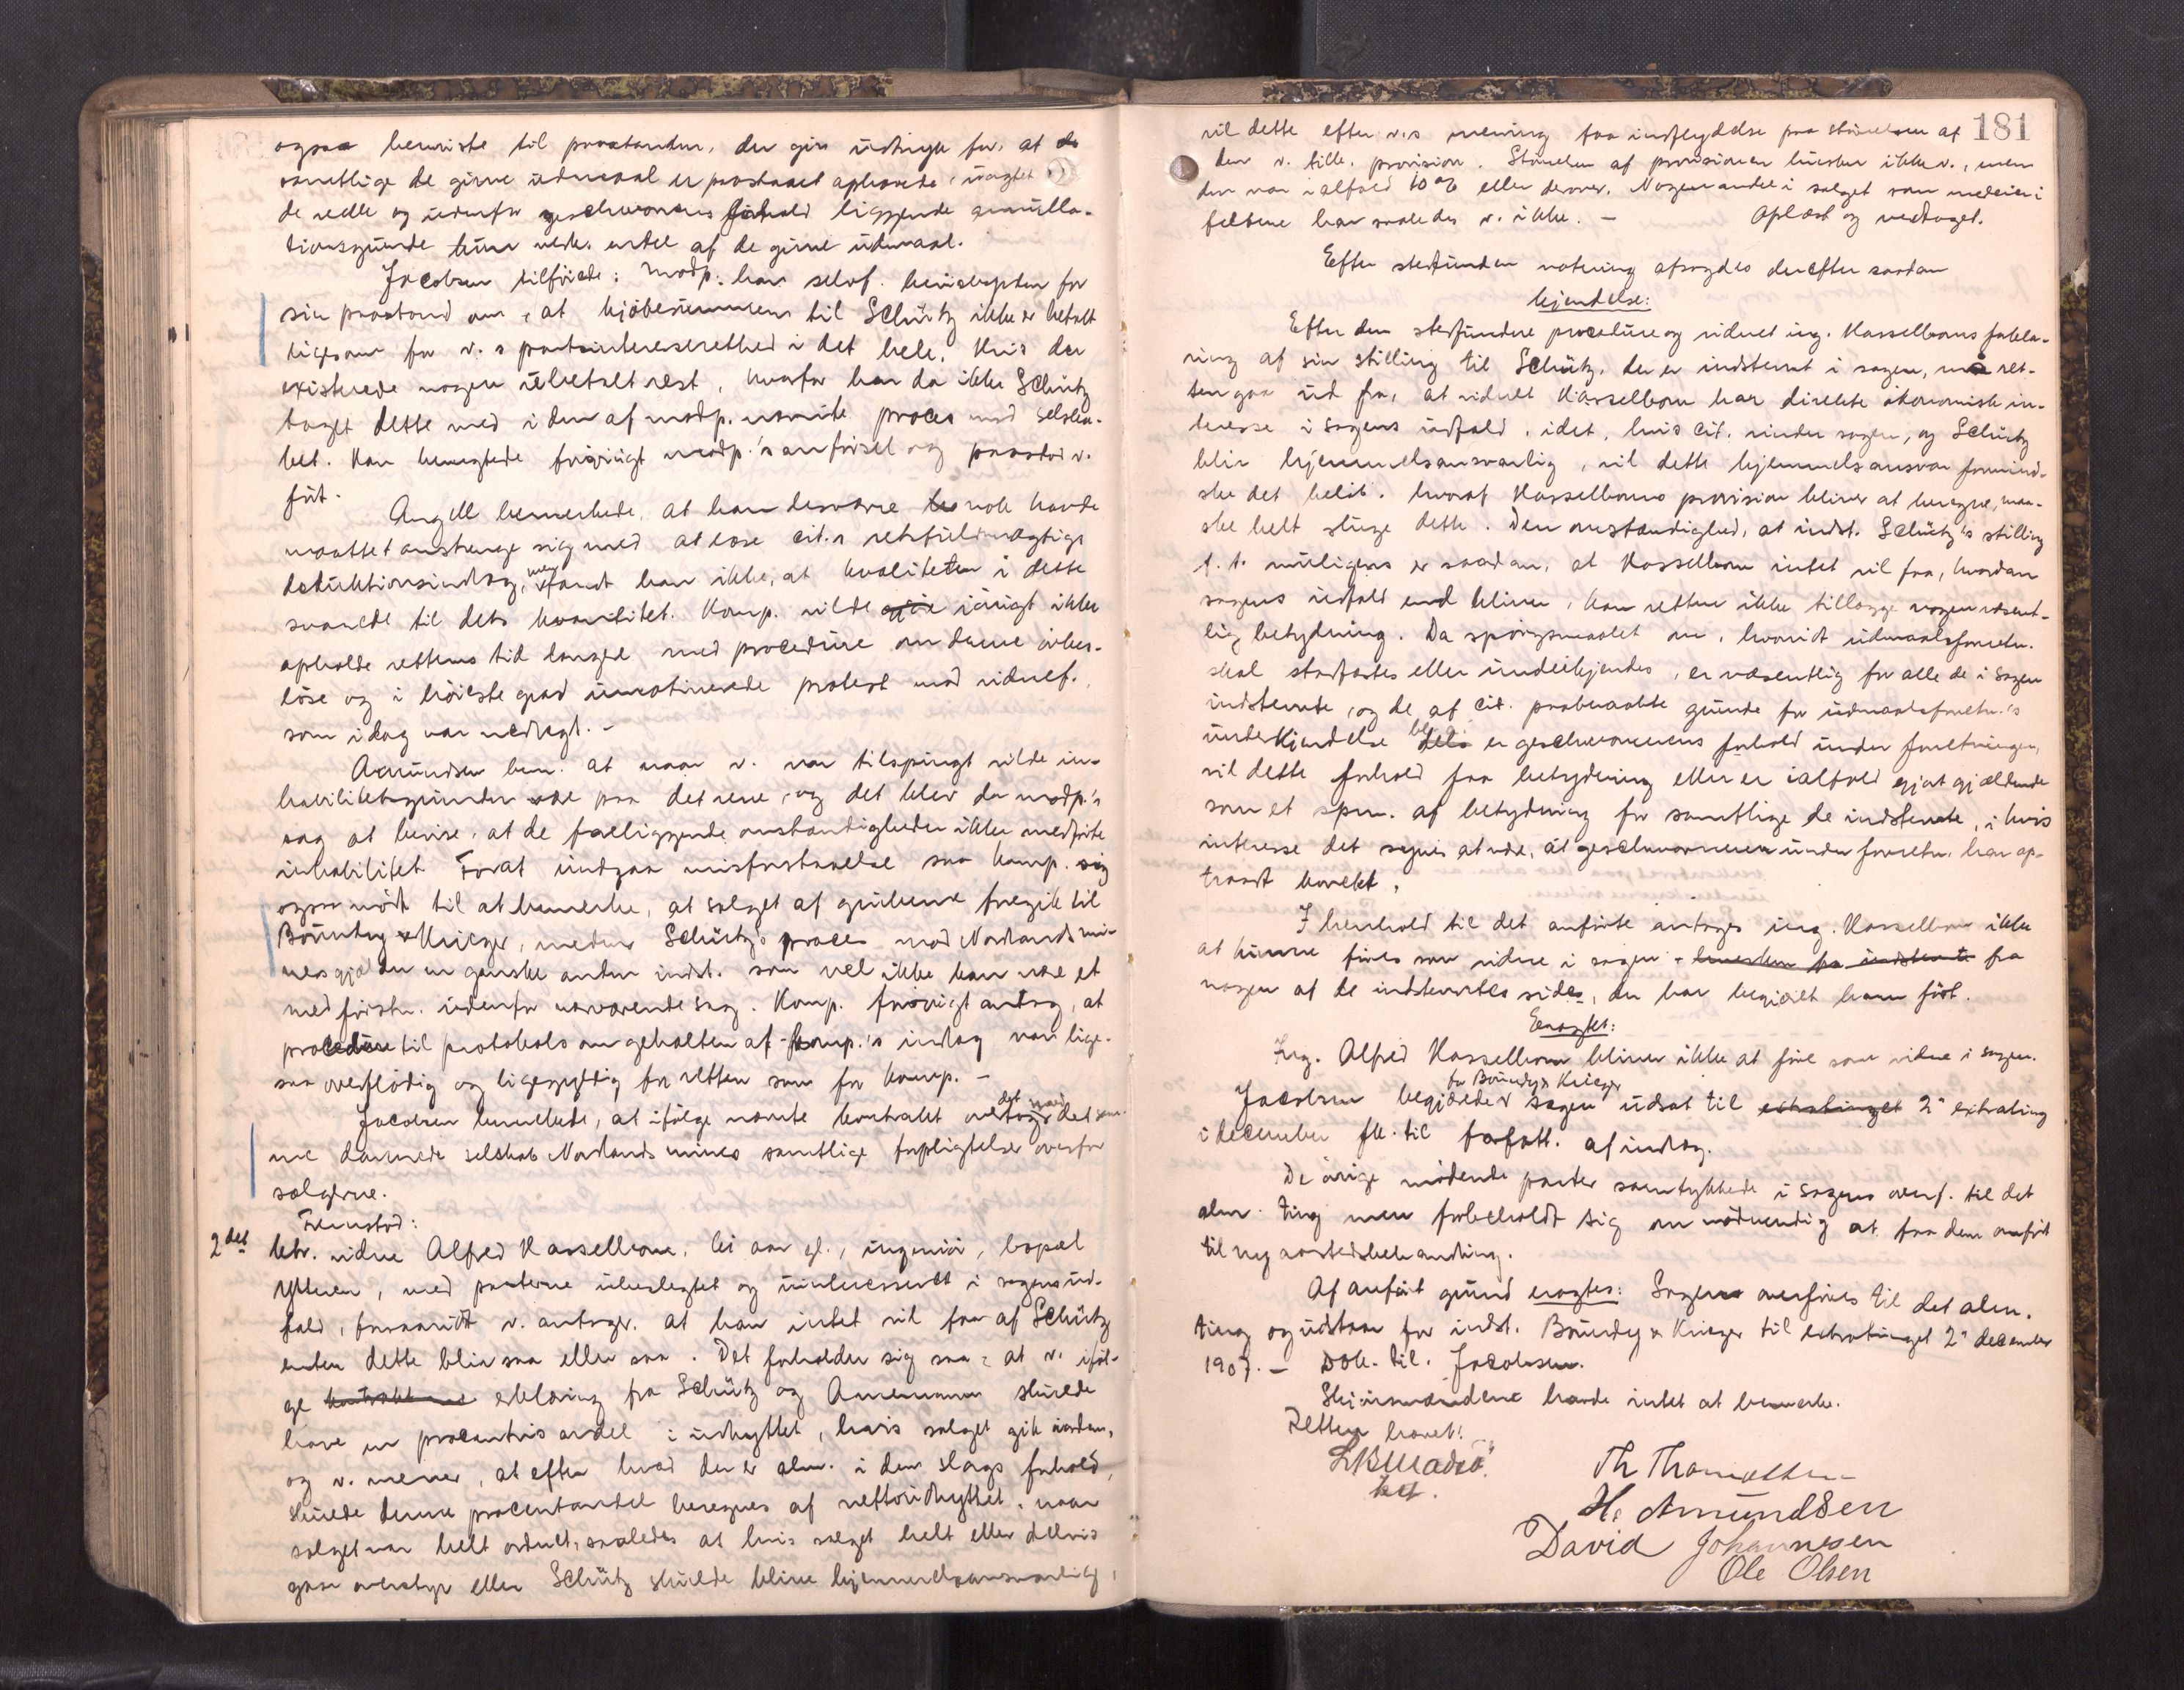 ogsaa henviste til paastanden, der gir udtryk for, at de
samtlige de givne udmaal er paastaaet ophævede, uagtet
de reelle og udenfor geschworens forhold liggende annulla-
tionsgrunde kun vedk. endel af de givne udmaal.
Jacobsen tilføiede: Modp. har selv f. bevisbyrden for
sin paastand om, at kjøbesummen til Schütz ikke er betalt
ligesom for v.s partsinteresserethed i det hele. Hvis der
existerede nogen ubetalt rest, hvorfor har da ikke Schütz
taget dette med i den af modp. nævnte proces mod selska-
bet. Han benegtede forøvrigt modp.'s anførsel og paastod v.
ført.
Angell bemerkede, at han desværre nok havde
maattet anstrenge sig med at læse cit.s retsfuldmægtigs
deduktionsindlæg, men fandt han ikke, at kvaliteten i dette
svarede til dets kvantitet. Komp. vilde iøvrigt ikke
opholde rettens tid længere med procedure om denne
løse og i høieste grad umotiverede protest mod vidnef.
som idag var nedlagt. -
Amundsen bem. at naar v. var tilspurgt vilde in-
habilitetsgrunden være paa det rene, og det blev da modp.'s
sag at bevise, at de foreliggende omstændigheder ikke medførte
inhabilitet. Forat undgaa misforstaaelse saa komp. sig
ogsaa nødt til at bemerke, at salget af gruberne foregik til
Bäundig & Krieger, medens Schütz's proces mod Nordlands mi-
nes gjælder en ganske anden indst. som vel ikke kan være et
med førstn. udenfor nærværende sag. Komp. forøvrigt antog, at
procedure til protokols om gehalten af komp.'s indlæg var lige-
saa overflødig og ligegyldig for retten som for komp. -
Jacobsen bemerkede, at ifølge nævnte kontrakt overtog det
dannede selskab Nordlands mines samtlige forpligtelser overfor
sælgerne.
Fremstod:
2det lebr. vidne Alfred Hasselbom, 61 aar gl., ingeniør, bopæl
Ytteren, med parterne ubeslegtet og uinteresseret i sagens ud-
fald, forsaavidt v. antager, at han intet vil faa af Schütz
enten dette blir saa eller saa. Det forholder sig saa, at v. iføl-
ge erklæring fra Schütz og skulde
have en procentvis andel i udbyttet, hvis salget gik iorden,
og v. mener, at efter hvad der er alm. i den slags forhold,
skulde denne procentandel beregnes af nettoudbyttet, naar
salget var helt ordnet, saaledes at hvis salget helt eller delvis
gaar overstyr eller Schütz skulde blive hjemmelsansvarlig,
181
vil dette efter v.s mening faa indflydelse paa størrelsen af
den v. tilk. provision. Størrelsen af provisionen husker ikke v., men
den var ialfald 10 % eller derover. Nogen andel i salget som medeier i
felterne har saaledes v. ikke. - Oplæst og vedtaget.
Efter stedfunden votering afsagdes derefter saadan
kjendelse:
Efter den stedfundne procedure og vidnet ing. Hasselboms forkla-
ring af sin stilling til Schütz, der er indstevnt i sagen, maa ret-
ten gaa ud fra, at vidnet Hasselbom har direkte økonomisk in-
teresse i sagens udfald, idet, hvis cit. vinder sagen, og Schütz
blir hjemmelsansvarlig, vil dette hjemmelsansvar formind-
ske det beløb, hvoraf Hasselboms provision bliver at beregne, maa-
ske helt sluge dette. Den omstændighed, at indst. Schütz's stilling
f. t. muligens er saadan, at Hasselbom intet vil faa, hvordan
sagens udfald end bliver, kan retten ikke tillægge nogen væsent-
lig betydning. Da spørgsmaalet om, hvorvidt udmaalsforretn.
skal stadfæstes eller underkjendes, er væsentlig for alle de i sagen
indstevnte, og de af cit. paaberaabte grunde for udmaalsforretn.'s
underkjendelse bl. a. er geschworenens forhold under forretningen,
vil dette forhold faa betydning eller er ialfald gjort gjældende
som et spm. af betydning for samtlige de indstevnte, i hvis
interesse det synes at være, at geschworenen under forretn. har op-
traadt korrekt.
I henhold til det anførte antages ing. Hasselbom ikke
at kunne føres som vidne i sagen fra
nogen af de indstevntes side, der har begjært ham ført.
Eragtet:
Ing. Alfred Hasselbom bliver ikke at føre som vidne i sagen.
Jacobsen begjærede for Bäundig & Krieger sagen udsat til 2' extrating
i december fk. til forfatt. af indlæg.
De øvrige mødende parter samtykkede i sagens overf. til det
alm. ting men forbeholdt sig om nødvendig at faa den anført
til ny aastedsbehandling.
Af anført grund eragtes: Sagen overføres til det alm.
ting og udstaar for indst. Bäundig & Krieger til extratinget 2' december
1907. - Dok. til. Jacobsen.
Skjønsmændene havde intet at bemerke.
Retten hævet!
Th Thomassen
H. Amundsen
David Johannesen
Ole Olsen